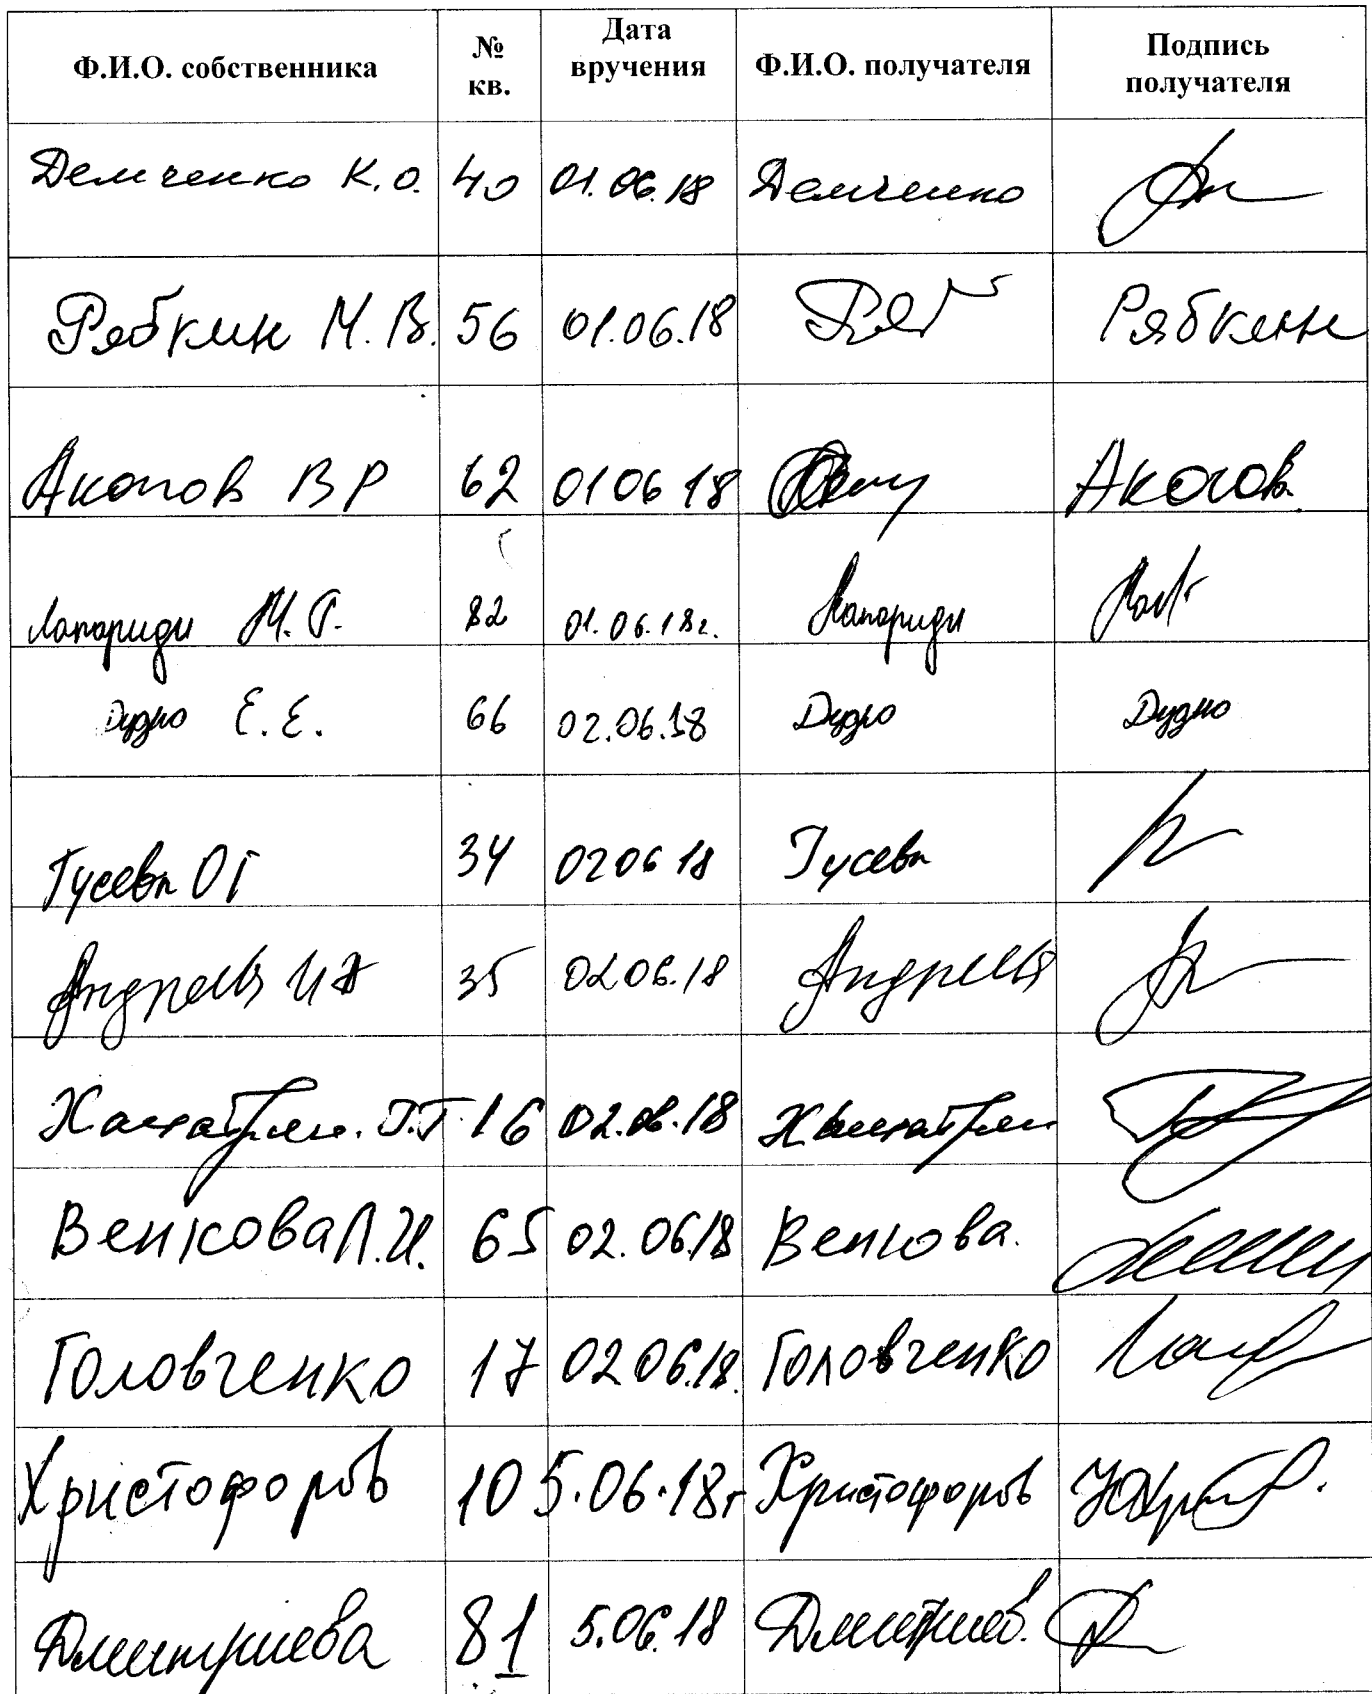 Ф.И.О. собственника № кв. Дата вручения Ф.И.О. получателя Подпись получателя
Демченко К.О. 40 01.06.18 Демченко
Рябкин М.В. 56 01.06.18 Ряб Рябкин
Акопов ВР 62 01 06 18 Акопов.
Лапориди М.Г. 82 01.06.18г. Лапориди
Дудко Е.Е. 66 02.06.18 Дудко Дудко
Гусева ОГ 34 02 06 18 Гусева
35 02.06.18
16 02.06.18
Венкова Л.И. 65 02.06.18 Венкова.
Головченко 17 02 06.18. Головченко
Христофоров 10 5.06.18г Христофоров
Дмитриева 81 5.06.18 Дмитриев.